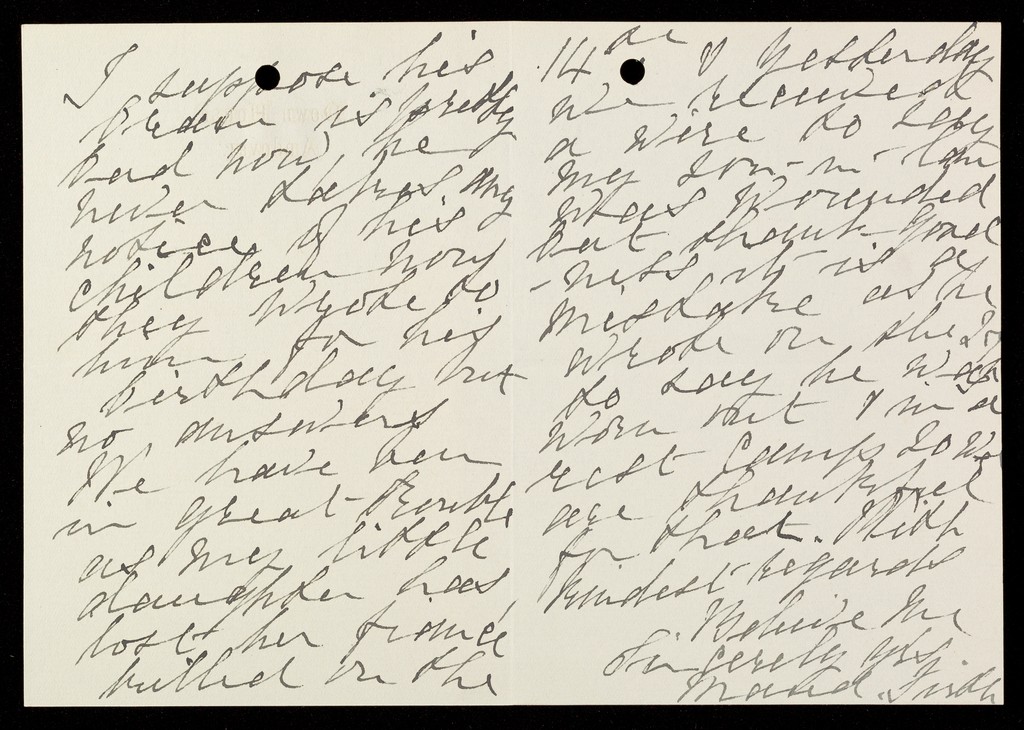 I suppose his
brain is pretty
bad now, he
never takes any
notice of his
children now
they wrote to
him for his
birthday but
no answers
We have been
in great trouble
as my little
daughter has
lost her fiancé
killed on the
14th & yesterday
we received
a wire to say
my son-in-law
was wounded
but thank good
-ness it is a
mistake as he
wrote on the
to say he was
worn out & in a
rest camp so we
are thankful
for that. With
kindest regards
Believe me
Sincerely yrs.
Maud.